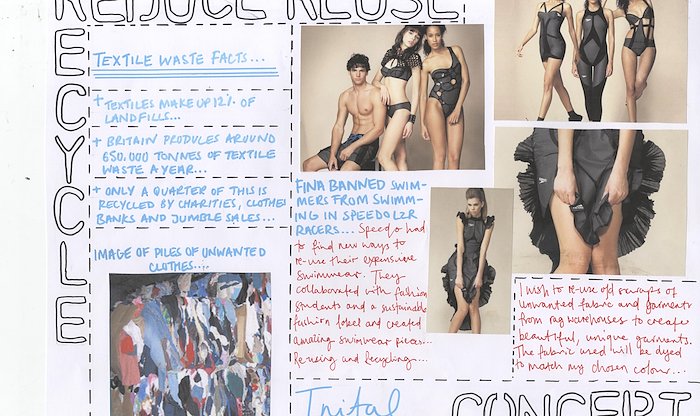 REDUCE REUSE
RECYCLE
TEXTILE WASTE FACTS...
+ TEXTILES MAKE UP 12% OF
LANDFILLS...
+ BRITAIN PRODUCES AROUND
650.000 TONNES OF TEXTILE
WASTE A YEAR...
+ ONLY A QUARTER OF THIS IS
RECYCLED BY CHARITIES, CLOTHES
BANKS AND JUMBLE SALES...
IMAGE OF PILES OF UNWANTED
CLOTHES....
FINA BANNED SWIM-
MERS FROM SWIMM-
ING IN SPEEDO LZR
RACERS... Speedo had
to find new ways to
re-use their expensive
swimwear. They
collaborated with fashion
students and a sustainable
fashion label and created
amazing swimwear pieces...
Re-using and Recycling...
I wish to re-use old scraps of
unwanted fabric and garments
from rag warehouses to create
beautiful, unique garments.
The fabric used will be dyed
to match my chosen colour...
Initial
CONCEPT